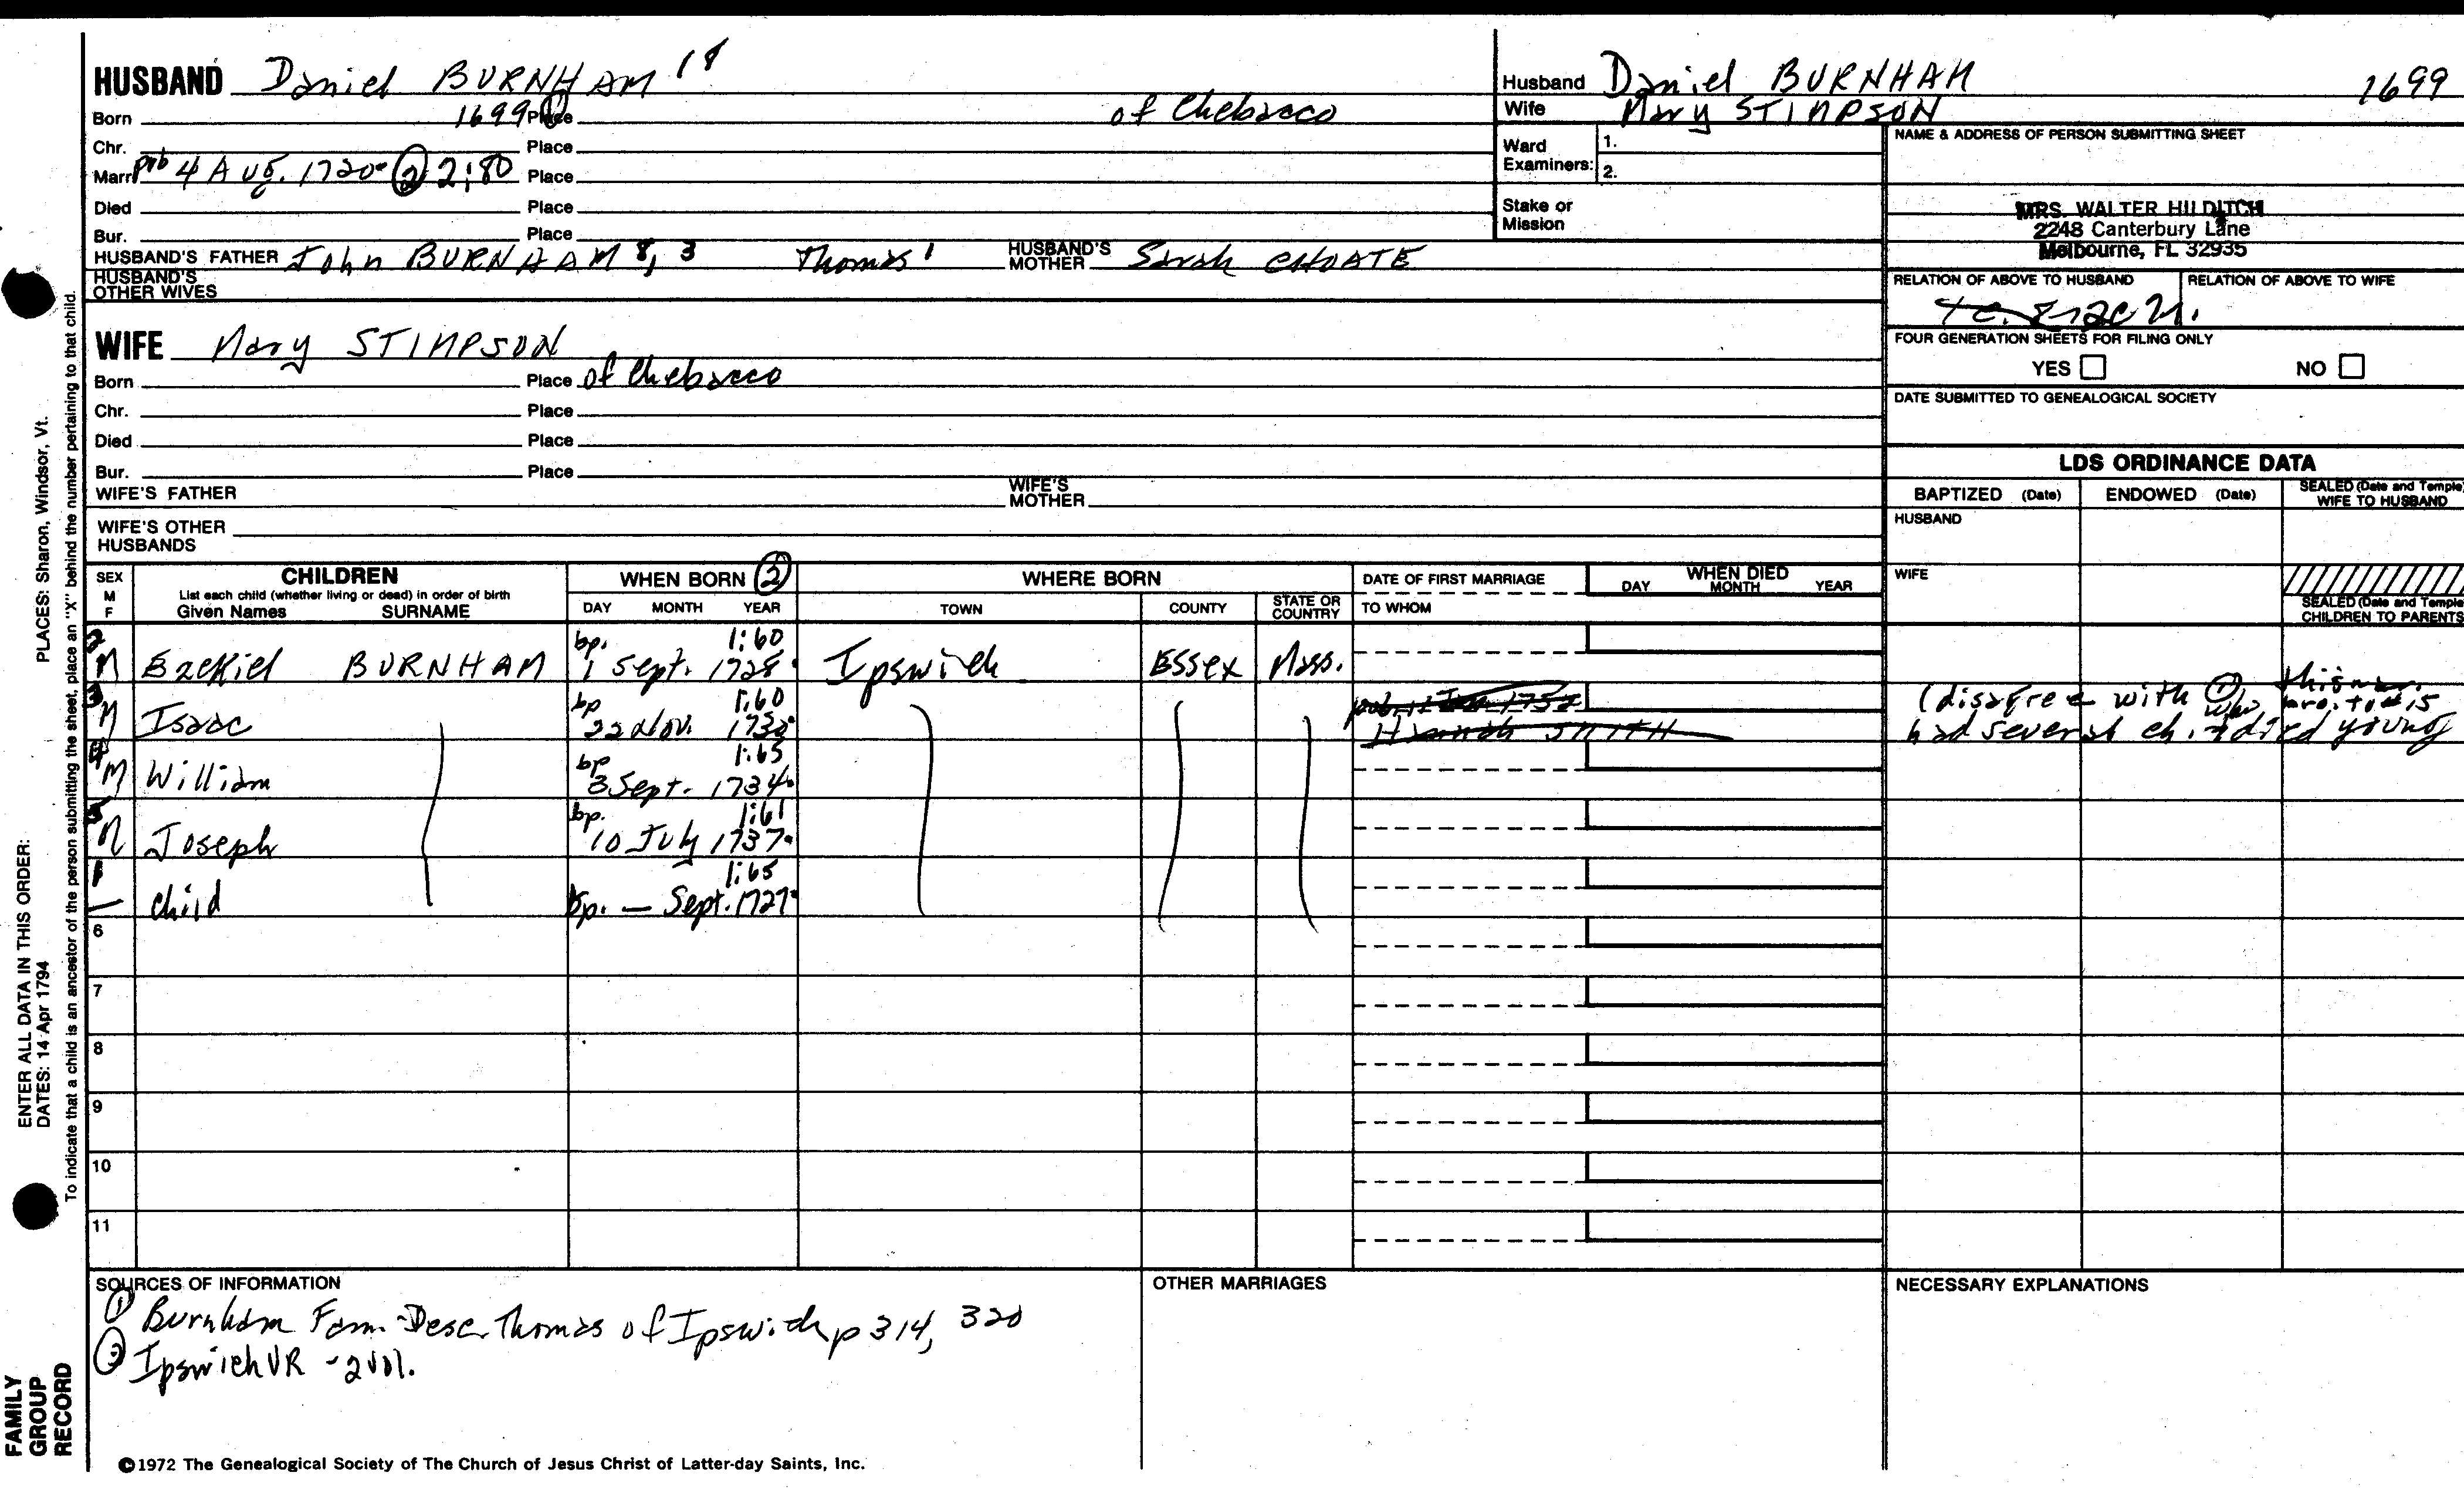 HUSBAND Daniel BURNHAM 18
Born 1699 ① Place of Chebacco
Chr. Place
Marr. pub 4 Aug. 1720 ② 2:80 Place
Died Place
Bur. Place
HUSBAND'S FATHER John BURNHAM 8, 3 Thomas 1 HUSBAND'S MOTHER Sarah CHOATE
HUSBAND'S OTHER WIVES
WIFE Mary STIMPSON
Born Place of Chebacco
Chr. Place
Died Place
Bur. Place
WIFE'S FATHER WIFE'S MOTHER
WIFE'S OTHER HUSBANDS
Husband Daniel BURNHAM 1699
Wife Mary STIMPSON
Ward Examiners: 1.
2.
Stake or Mission
NAME & ADDRESS OF PERSON SUBMITTING SHEET
MRS. WALTER HILDITCH
2248 Canterbury Lane
Melbourne, FL 32935
RELATION OF ABOVE TO HUSBAND RELATION OF ABOVE TO WIFE
FOUR GENERATION SHEETS FOR FILING ONLY
YES NO
DATE SUBMITTED TO GENEALOGICAL SOCIETY
LDS ORDINANCE DATA
BAPTIZED (Date) ENDOWED (Date) SEALED (Date and Temple) WIFE TO HUSBAND
HUSBAND
WIFE
SEALED (Date and Temple) CHILDREN TO PARENTS
SEX M F CHILDREN WHEN BORN ② WHERE BORN DATE OF FIRST MARRIAGE WHEN DIED
List each child (whether living or dead) in order of birth
Given Names SURNAME DAY MONTH YEAR TOWN COUNTY STATE OR COUNTRY TO WHOM DAY MONTH YEAR
2 bp. 1:60
M Ezekiel BURNHAM 1 Sept. 1728 Ipswich Essex Mass.
3 bp 1:60
M Isaac 22 Nov. 1730 Hannah SMITH
(disagree with ① who
had several ch. died young
4 bp 1:65
M William 8 Sept. 1734
5 bp. 1:61
M Joseph 10 July 1737
1 1:65
— child bp. — Sept. 1727
6
7
8
9
10
11
SOURCES OF INFORMATION
① Burnham Fam-Desc. Thomas of Ipswich p 314, 320
② Ipswich VR - 2 vol.
OTHER MARRIAGES
NECESSARY EXPLANATIONS
©1972 The Genealogical Society of The Church of Jesus Christ of Latter-day Saints, Inc.
ENTER ALL DATA IN THIS ORDER:
DATES: 14 Apr 1794 PLACES: Sharon, Windsor, Vt.
To indicate that a child is an ancestor of the person submitting the sheet, place an "X" behind the number pertaining to that child.
FAMILY
GROUP
RECORD